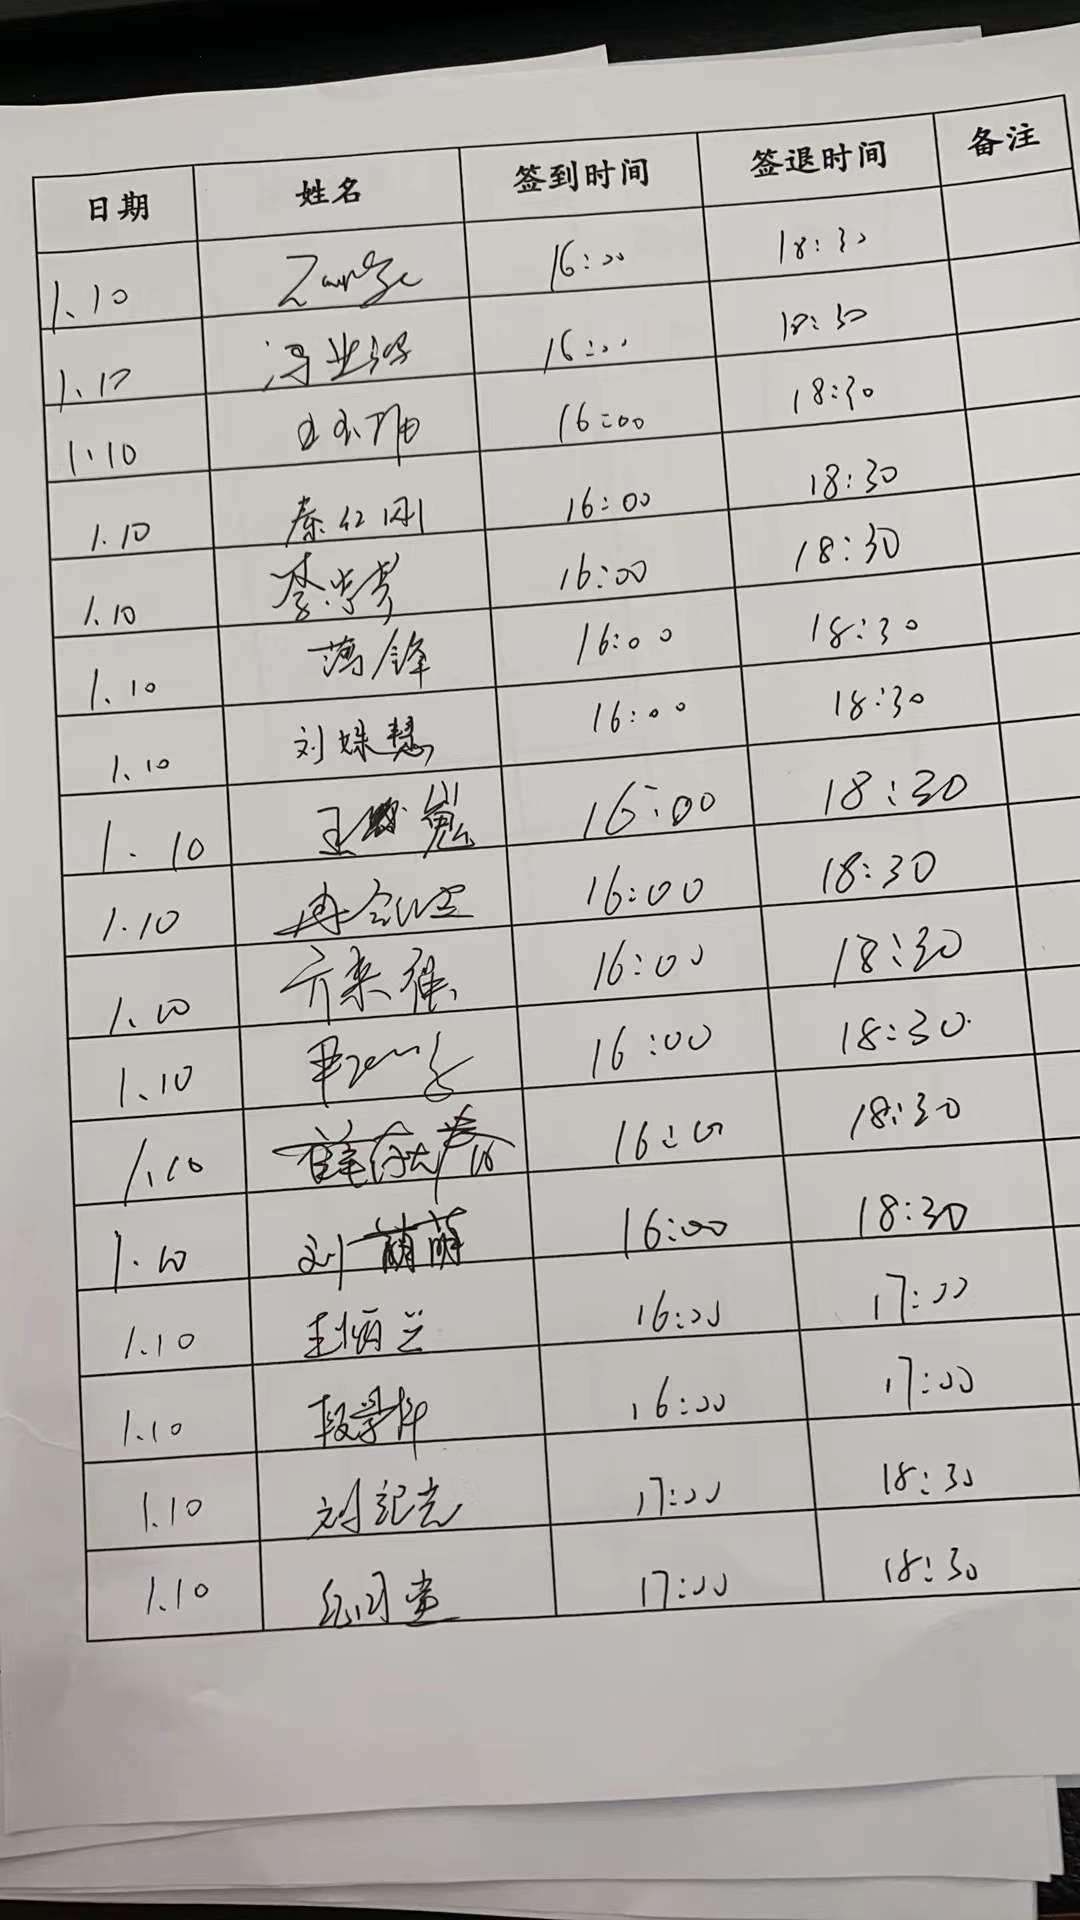 日期 姓名 签到时间 签退时间 备注
1.10 16:00 18:30
1.10 16:00 18:30
1.10 16:00 18:30
1.10 秦红刚 16:00 18:30
1.10 李 16:00 18:30
1.10 薄锋 16:00 18:30
1.10 刘姝慧 16:00 18:30
1.10 王 嵬 16:00 18:30
1.10 16:00 18:30
1.10 亓来强 16:00 18:30
1.10 16:00 18:30
1.10 16:00 18:30
1.10 刘萌萌 16:00 18:30
1.10 16:00 17:00
1.10 段学科 16:00 17:00
1.10 刘纪光 17:00 18:30
1.10 17:00 18:30